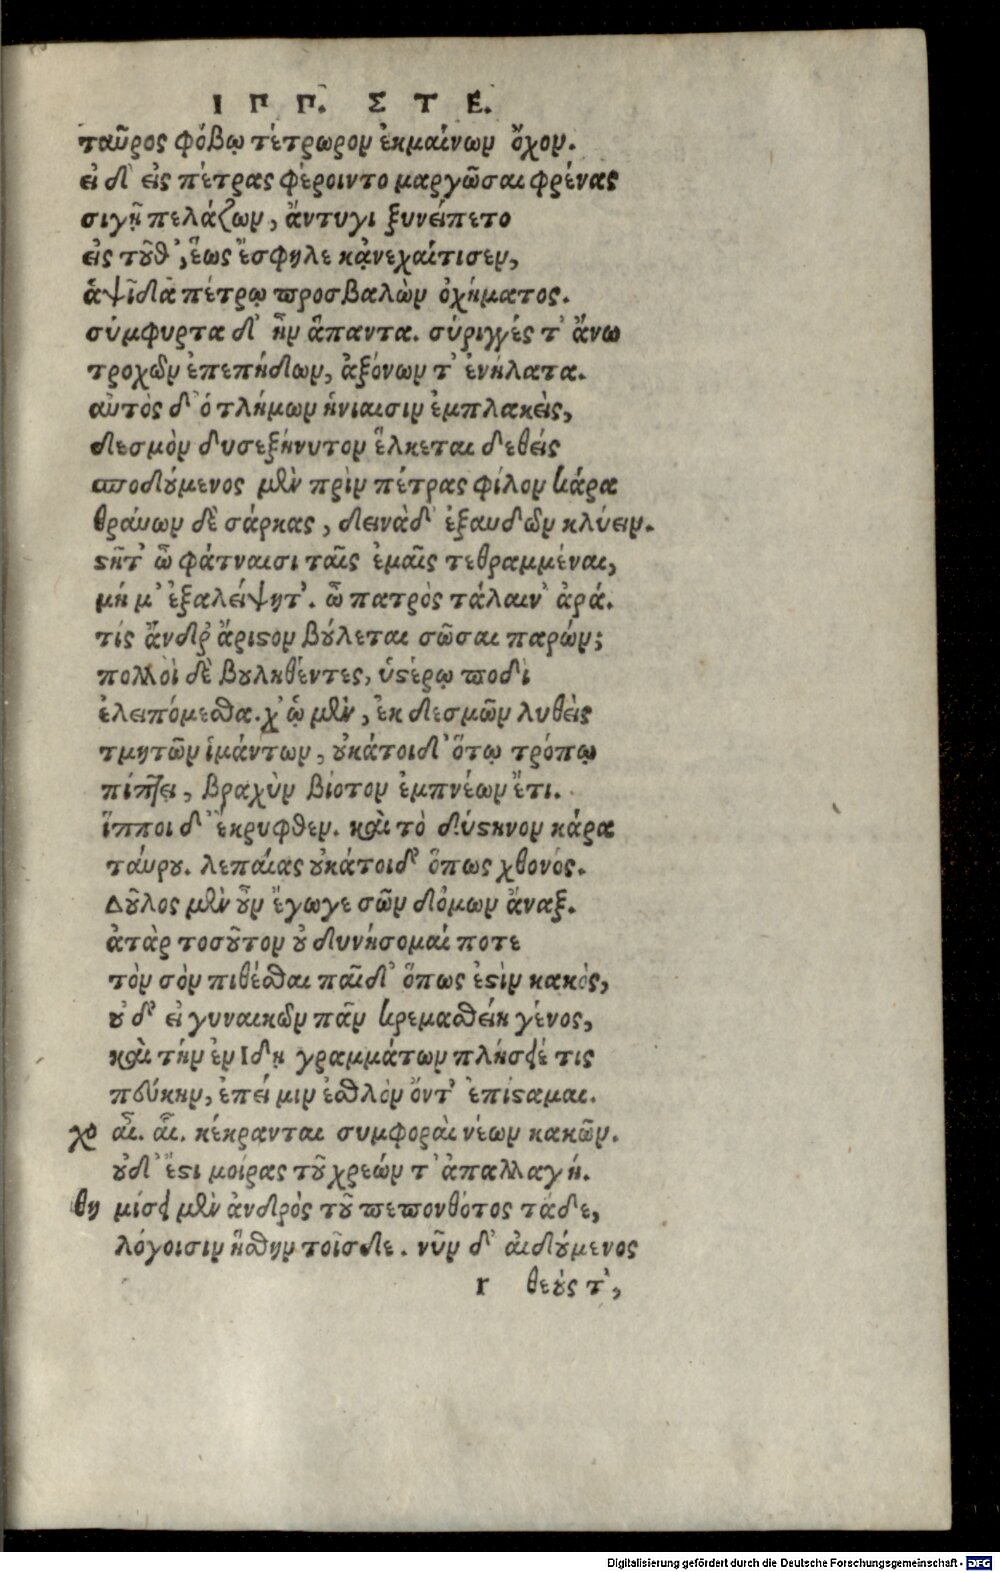 ΙΠΠ. ΣΤΕ.
ταῦρος φόβῳ τέτρωρον ἐκμαίνων ὄχον.
εἰ δ' εἰς πέτρας φέροιντο μαργῶσαι φρένας
σιγῇ πελάζων, ἄντυγι ξυνείπετο
εἰς τοῦθ', ἕως ἔσφηλε κᾀνεχαίτισεν,
ἁψῖδα πέτρῳ προσβαλὼν ὀχήματος.
σύμφυρτα δ' ἦν ἅπαντα. σύριγγές τ' ἄνω
τροχῶν ἐπεπήδων, ἀξόνων τ' ἐνήλατα.
αὐτὸς δ' ὁ τλήμων ἡνίαισιν ἐμπλακεὶς,
δεσμὸν δυσεξήνυτον ἕλκεται δεθείς
σποδούμενος μὲν πρὶν πέτρας φίλον κάρα
θραύων δὲ σάρκας, δεινὰ δ' ἐξαυδῶν κλύειν.
στῆτ' ὦ φάτναισι ταῖς ἐμαῖς τεθραμμέναι,
μή μ' ἐξαλείψητ'. ὦ πατρὸς τάλαιν' ἀρά.
τίς ἄνδρ' ἄριστον βούλεται σῶσαι παρών;
πολλοὶ δὲ βουληθέντες, ὑστέρῳ ποδὶ
ἐλειπόμεσθα. χ' ᾧ μὲν, ἐκ δεσμῶν λυθεὶς
τμητῶν ἱμάντων, οὐκάτοιδ' ὅτῳ τρόπῳ
πίπτει, βραχὺν βίοτον ἐμπνέων ἔτι.
ἵπποι δ' ἔκρυφθεν. καὶ τὸ δύστηνον κάρα
ταύρου. λεπαίας οὐκάτοιδ' ὅπως χθονός.
Δοῦλος μὲν οὖν ἔγωγε σῶν δόμων ἄναξ.
ἀτὰρ τοσοῦτον οὐ δυνήσομαί ποτε
τὸν σὸν πιθέσθαι παῖδ' ὅπως ἐστὶν κακὸς,
οὐ δ' εἰ γυναικῶν πᾶν κρεμασθείη γένος,
καὶ τὴν ἐν Ιδῃ γραμμάτων πλήσειέ τις
πεύκην, ἐπεί μιν ἐσθλὸν ὄντ' ἐπίσταμαι.
χο αἶ. αἶ. κέκρανται συμφοραὶ νέων κακῶν.
οὐδ' ἔστι μοίρας τοῦ χρεών τ' ἀπαλλαγή.
θη μίσει μὲν ἀνδρὸς τοῦ πεπονθότος τάδε,
λόγοισιν ἥσθην τοῖσδε. νῦν δ' αἰδούμενος
r θεούς τ',
Digitalisierung gefördert durch die Deutsche Forschungsgemeinschaft - DFG